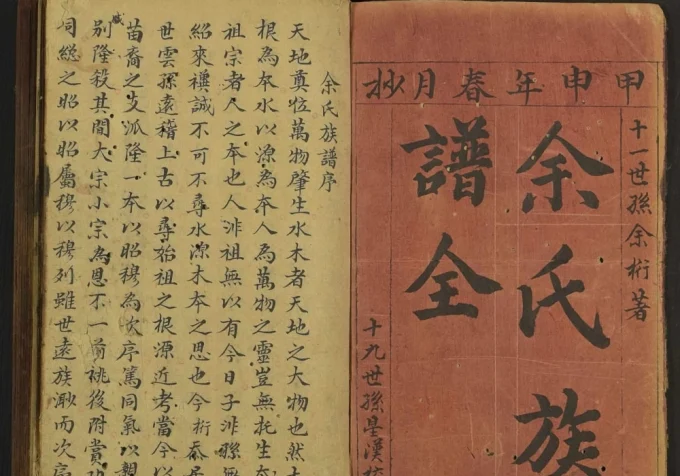 甲申年春月抄
十一世孫余桁著
余氏族
譜全
十九世孫星漢
余氏族譜序
天地奠位萬物肇生水木者天地之大物也然
根為本水以源為本人為萬物之靈豈無托生
祖宗者人之本也人非祖無以有今日子非孫
紹來禩誠不可不尋水源木本之思也今桁忝
世雲孫遠稽上古以尋始祖之根源近考當今以
苗裔之支派隆一本以昭穆為次序篤同氣以親
別隆殺其間大宗小宗為恩不一前祧後附當
戚
同總之昭以昭屬穆以穆列雖世遠族渺而次序